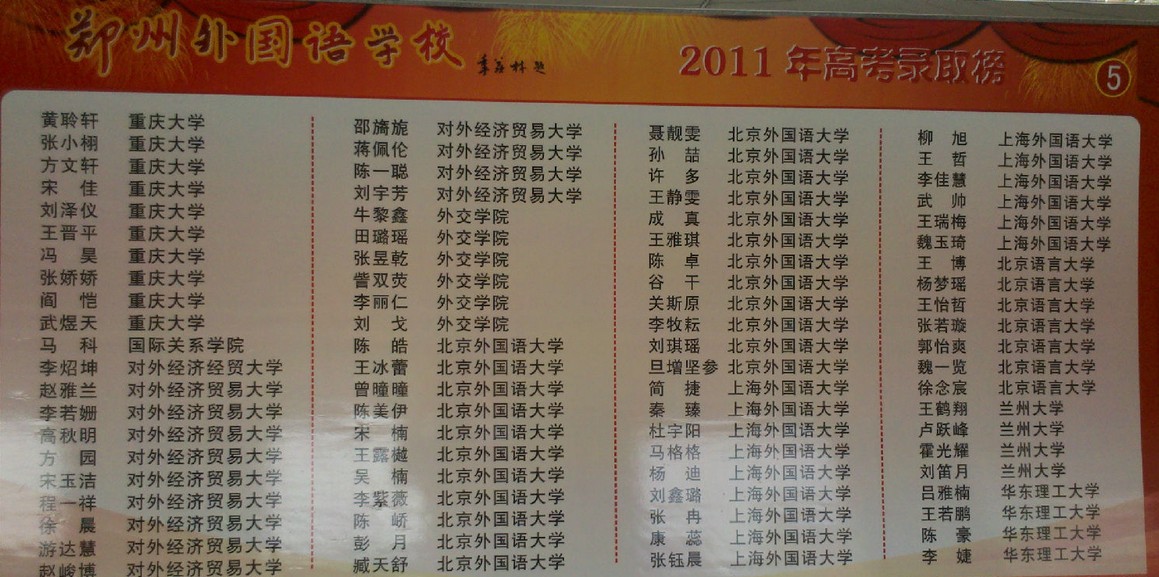 郑州外国语学校
季羡林题
2011年高考录取榜
5
黄聆轩 重庆大学
张小栩 重庆大学
方文轩 重庆大学
宋佳 重庆大学
刘泽仪 重庆大学
王晋平 重庆大学
冯昊 重庆大学
张娇娇 重庆大学
阎恺 重庆大学
武煜天 重庆大学
马科 国际关系学院
李炤坤 对外经济经贸大学
赵雅兰 对外经济贸易大学
李若姗 对外经济贸易大学
高秋明 对外经济贸易大学
方园 对外经济贸易大学
宋玉洁 对外经济贸易大学
程一祥 对外经济贸易大学
徐晨 对外经济贸易大学
游达慧 对外经济贸易大学
赵峻博 对外经济贸易大学
邵旖旎 对外经济贸易大学
蒋佩伦 对外经济贸易大学
陈一聪 对外经济贸易大学
刘宇芳 对外经济贸易大学
牛黎鑫 外交学院
田璐瑶 外交学院
张昱乾 外交学院
訾双荧 外交学院
李丽仁 外交学院
刘戈 外交学院
陈皓 北京外国语大学
王冰蕾 北京外国语大学
曾曈曈 北京外国语大学
陈美伊 北京外国语大学
宋楠 北京外国语大学
王露樾 北京外国语大学
吴楠 北京外国语大学
李紫薇 北京外国语大学
陈峤 北京外国语大学
彭月 北京外国语大学
臧天舒 北京外国语大学
聂靓雯 北京外国语大学
孙喆 北京外国语大学
许多 北京外国语大学
王静雯 北京外国语大学
成真 北京外国语大学
王雅琪 北京外国语大学
陈卓 北京外国语大学
谷干 北京外国语大学
关斯原 北京外国语大学
李牧耘 北京外国语大学
刘琪瑶 北京外国语大学
旦增坚参 北京外国语大学
简捷 上海外国语大学
秦臻 上海外国语大学
杜宇阳 上海外国语大学
马格格 上海外国语大学
杨迪 上海外国语大学
刘鑫璐 上海外国语大学
张冉 上海外国语大学
康蕊 上海外国语大学
张钰晨 上海外国语大学
柳旭 上海外国语大学
王哲 上海外国语大学
李佳慧 上海外国语大学
武帅 上海外国语大学
王瑞梅 上海外国语大学
魏玉琦 上海外国语大学
王博 北京语言大学
杨梦瑶 北京语言大学
王怡哲 北京语言大学
张若璇 北京语言大学
郭怡爽 北京语言大学
魏一览 北京语言大学
徐念宸 北京语言大学
王鹤翔 兰州大学
卢跃峰 兰州大学
霍光耀 兰州大学
刘笛月 兰州大学
吕雅楠 华东理工大学
王若鹏 华东理工大学
陈豪 华东理工大学
李婕 华东理工大学